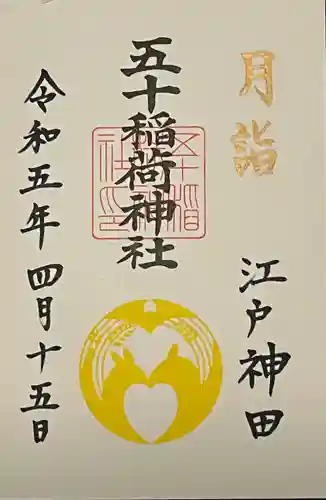 月詣
江戸神田
五十稲荷神社
令和五年四月十五日